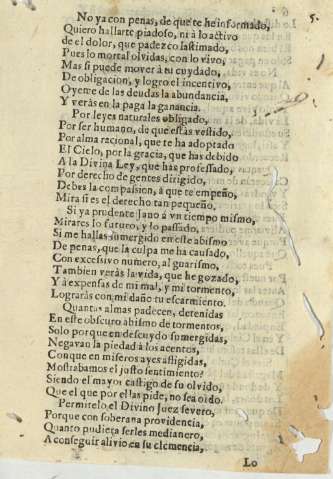 5.
No ya con penas, de que te he informado,
Quiero hallarte piadoso, ni à lo activo
de el dolor, que padezco lastimado,
Pues lo mortal olvidas, con lo vivo,
Mas si puede mover à tu cuydado,
De obligacion, y logro el incentivo,
Oyeme de las deudas la abundancia,
Y veràs en la paga la ganancia.
Por leyes naturales obligado,
Por ser humano, de que estàs vestido,
Por alma racional, que te ha adoptado
El Cielo, por la gracia, que has debido
A la Divina Ley, que has professado,
Por derecho de gentes dirigido,
Debes la compassion, à que te empeño,
Mira si es el derecho tan pequeño,
Si ya prudente Jano à vn tiempo mismo,
Mirares lo futuro, y lo passado,
Si me hallas inmergido en este abismo
De penas, que la culpa me ha causado,
Con excessivo numero, al guarismo,
Tambien veràs la vida, que he gozado,
Y à expensas de mi mal, y mi tormento,
Lograràs con mi daño tu escarmiento.
Quantas almas padecen, detenidas
En este obscuro abismo de tormentos,
Solo porque en descuydo sumergidas,
Negavan la piedad à los acentos,
Conque en miseros ayes afligidas,
Mostrabamos el justo sentimiento?
Siendo el mayor castigo de su olvido,
Que el que por ellas pide, no sea oido.
Permitelo el Divino Juez severo,
Porque con soberana providencia,
Quanto pudiera serles medianero,
A conseguir alivio en su clemencia,
Lo